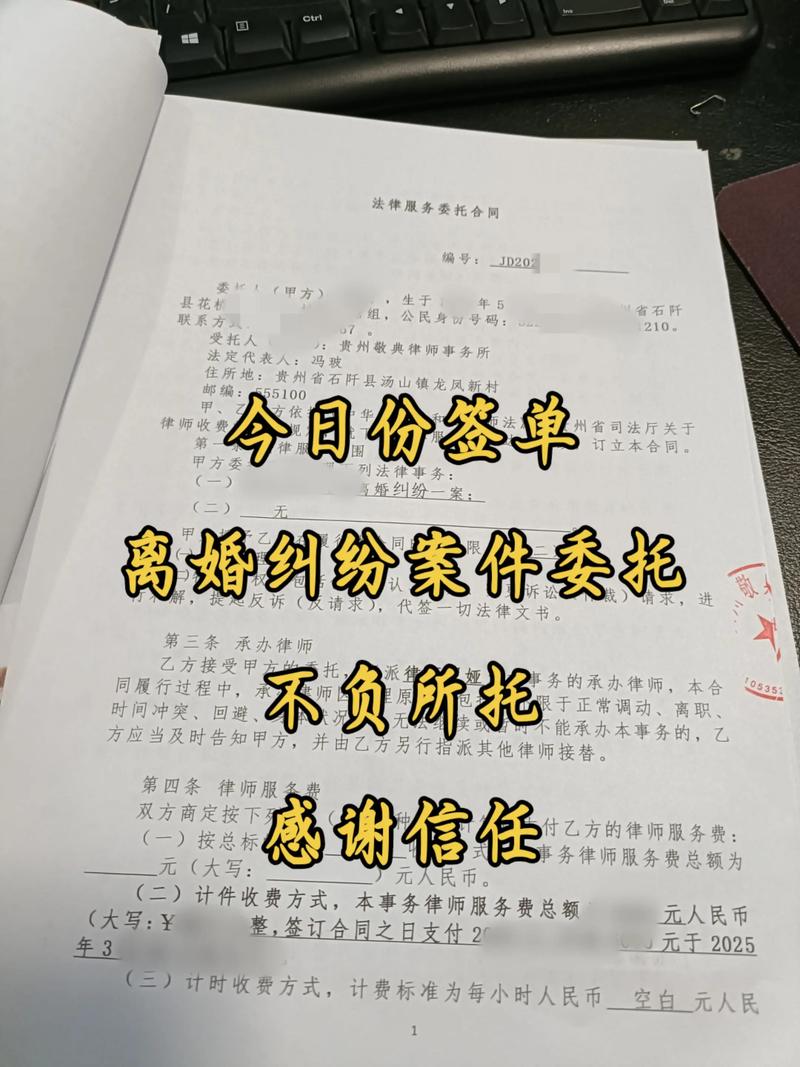 Ctrl
法律服务委托合同
编号： JD202
委托人（甲方） ，生于 年5
县花桥 组，公民身份号码： 州省石阡
联系方式 57 。 1210。
受托人 ：贵州敬典律师事务所
法定代表人：冯玻
住所地：贵州省石阡县汤山镇龙凤新村
邮编：555100
甲、乙 方依 中华 和 师法 州省司法厅关于
律师收费 规 就 服 订立本合同。
今日份签单
第一条 律服 围
甲方委 列法律事务：
（一） 离婚纠纷一案；
（二） 无
离婚纠纷案件委托
甲 乙 同 限 二
权 包括 认 诉讼 裁）请求，进
行和解，提起反诉（反请求），代签一切法律文书。
第三条 承办律师
乙方接受甲方的委托， 派律 娅 事务的承办律师，本合
同履行过程中，承 律师因 理原 包 限于正常调动、离职、
不负所托
时间冲突、回避、 状况 无法继续或暂时不能承办本事务的，乙
方应当及时告知甲方，并由乙方另行指派其他律师接替。
敬
105353
第四条 律师服务费
双方商定按下列 （ 种 计 支付乙方的律师服务费：
（一）按总标 收 式 事务律师服务费总额为
感谢信任
元（大写： ）元人民币。
（二）计件收费方式，本事务律师服务费总额 元人民币
（大写：¥ 整，签订合同之日支付 20 元于 2025
年 3
（三）计时收费方式，计费标准为每小时人民币 空白 元人民
1